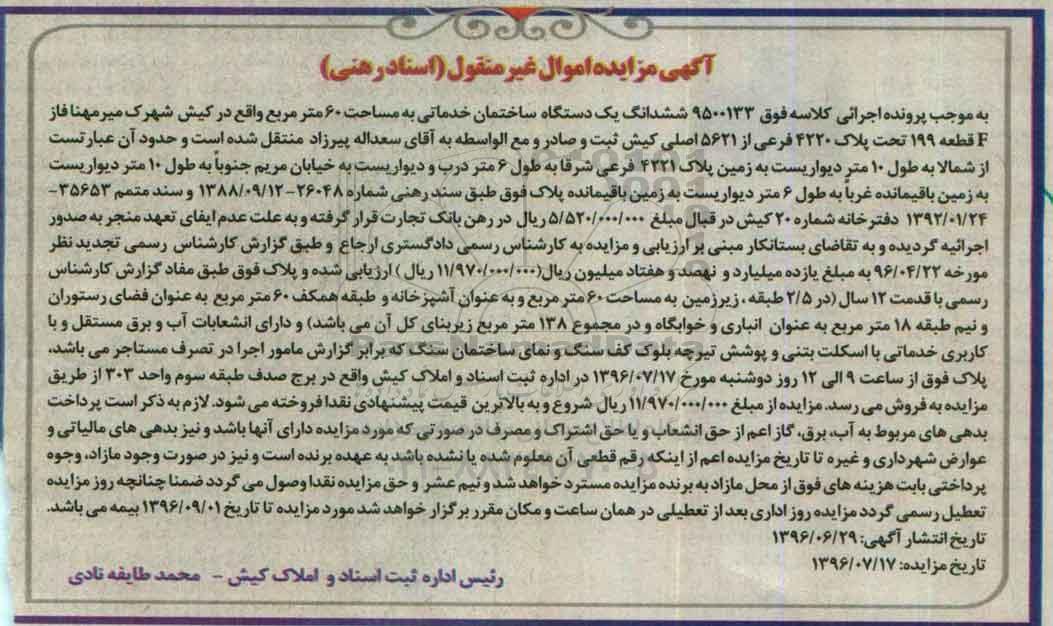 آگهی مزایده اموال غیر منقول (اسناد رهنی)
به موجب پرونده اجرائی کلاسه فوق ۹۵۰۰۱۳۳ ششدانگ یک دستگاه ساختمان خدماتی به مساحت ۶۰ متر مربع واقع در کیش شهرک میر مهنا فاز
F قطعه ۱۹۹ تحت پلاک ۴۲۲۰ فرعی از ۵۶۲۱ اصلی کیش ثبت و صادر و مع الواسطه به آقای سعداله پیرزاد منتقل شده است و حدود آن عبارتست
از شمالا به طول ۱۰ متر دیواریست به زمین پلاک ۴۲۲۱ فرعی شرقا به طول ۶ متر درب و دیواریست به خیابان مریم جنوباً به طول ۱۰ متر دیواریست
به زمین باقیمانده غرباً به طول ۶ متر دیواریست به زمین باقیمانده پلاک فوق طبق سند رهنی شماره ۲۶۰۴۸-۱۳۸۸/۰۹/۱۲ و سند متمم ۳۵۶۵۳-
۱۳۹۲/۰۱/۲۴ دفتر خانه شماره ۲۰ کیش در قبال مبلغ ۵/۵۲۰/۰۰۰/۰۰۰ ریال در رهن بانک تجارت قرار گرفته و به علت عدم ایفای تعهد منجر به صدور
اجرائیه گردیده و به تقاضای بستانکار مبنی بر ارزیابی و مزایده به کارشناس رسمی دادگستری ارجاع و طبق گزارش کارشناس رسمی تجدید نظر
مورخه ۹۶/۰۴/۲۲ به مبلغ یازده میلیارد و نهصد و هفتاد میلیون ریال(۱۱/۹۷۰/۰۰۰/۰۰۰ ریال ) ارزیابی شده و پلاک فوق طبق مفاد گزارش کارشناس
رسمی با قدمت ۱۲ سال (در ۲/۵ طبقه ، زیرزمین به مساحت ۶۰ متر مربع و به عنوان آشپزخانه و طبقه همکف ۶۰ متر مربع به عنوان فضای رستوران
و نیم طبقه ۱۸ متر مربع به عنوان انباری و خوابگاه و در مجموع ۱۳۸ متر مربع زیربنای کل آن می باشد) و دارای انشعابات آب و برق مستقل و با
کاربری خدماتی با اسکلت بتنی و پوشش تیرچه بلوک کف سنگ و نمای ساختمان سنگ که برابر گزارش مامور اجرا در تصرف مستاجر می باشد،
پلاک فوق از ساعت ۹ الی ۱۲ روز دوشنبه مورخ ۱۳۹۶/۰۷/۱۷ در اداره ثبت اسناد و املاک کیش واقع در برج صدف طبقه سوم واحد ۳۰۳ از طریق
مزایده به فروش می رسد. مزایده از مبلغ ۱۱/۹۷۰/۰۰۰/۰۰۰ ریال شروع و به بالاترین قیمت پیشنهادی نقدا فروخته می شود. لازم به ذکر است پرداخت
بدهی های مربوط به آب، برق، گاز اعم از حق انشعاب و یا حق اشتراک و مصرف در صورتی که مورد مزایده دارای آنها باشد و نیز بدهی های مالیاتی و
عوارض شهرداری و غیره تا تاریخ مزایده اعم از اینکه رقم قطعی آن معلوم شده یا نشده باشد به عهده برنده است و نیز در صورت وجود مازاد، وجوه
پرداختی بابت هزینه های فوق از محل مازاد به برنده مزایده مسترد خواهد شد و نیم عشر و حق مزایده نقدا وصول می گردد ضمنا چنانچه روز مزایده
تعطیل رسمی گردد مزایده روز اداری بعد از تعطیلی در همان ساعت و مکان مقرر برگزار خواهد شد مورد مزایده تا تاریخ ۱۳۹۶/۰۹/۰۱ بیمه می باشد.
تاریخ انتشار آگهی: ۱۳۹۶/۰۶/۲۹
تاریخ مزایده: ۱۳۹۶/۰۷/۱۷
رئیس اداره ثبت اسناد و املاک کیش - محمد طایفه نادی